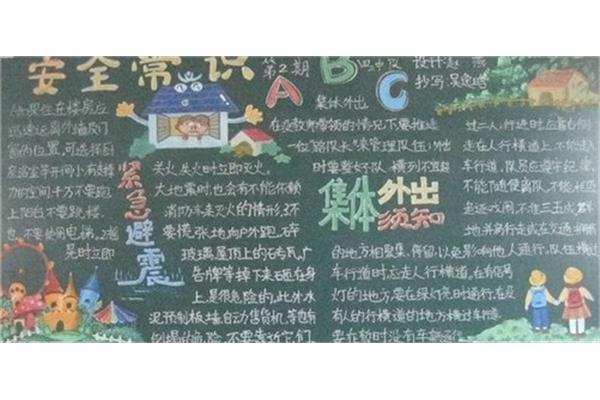 安全常识
第2期
ABC
设计:赵
抄写:吴
如果住在楼房应
迅速远离外墙及门
窗的位置,可选择到
浴室等开间小有支撑
力的空间,千万不要跑
上阳台不要跳楼。
也不要使用电梯。
紧急避震
关火,失火时立即灭火。
大地震时,也会有不能依赖
消防车来灭火的情形,不
要慌张地向户外跑,碎
玻璃屋顶上的砖瓦广
告牌等掉下来砸在身
上是很危险的,此外水
泥预制板墙,自动售货机等也有
倒塌的危险,不要靠近它们
集体外出
在没教师带领的情况下要推选
一位路队长来管理队伍;外出
时要整好队,横列不宜超
集体外出须知
过二人;行进时应靠右侧
走在人行横道上,不能走
车行道,队员应遵守纪律,
不能随便离队,不能相互
追逐戏闹,不准三五成群
地并肩行走或在交通要
的地方相聚集,停留,以免影响他人通行,队伍横过
车行道时应走人行横道,在有信号
灯的地方要在绿灯亮时通行,在没
有人的行横道的地方横过车行道
要在暂时没有车辆